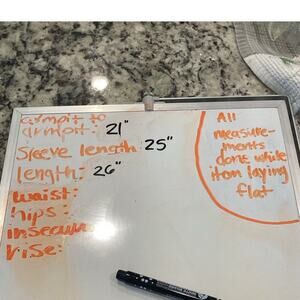 armpit to
armpit: 21"
Sleeve length: 25"
length: 26"
waist:
hips:
rise:
All
measure-
ments
done while
item laying
flat